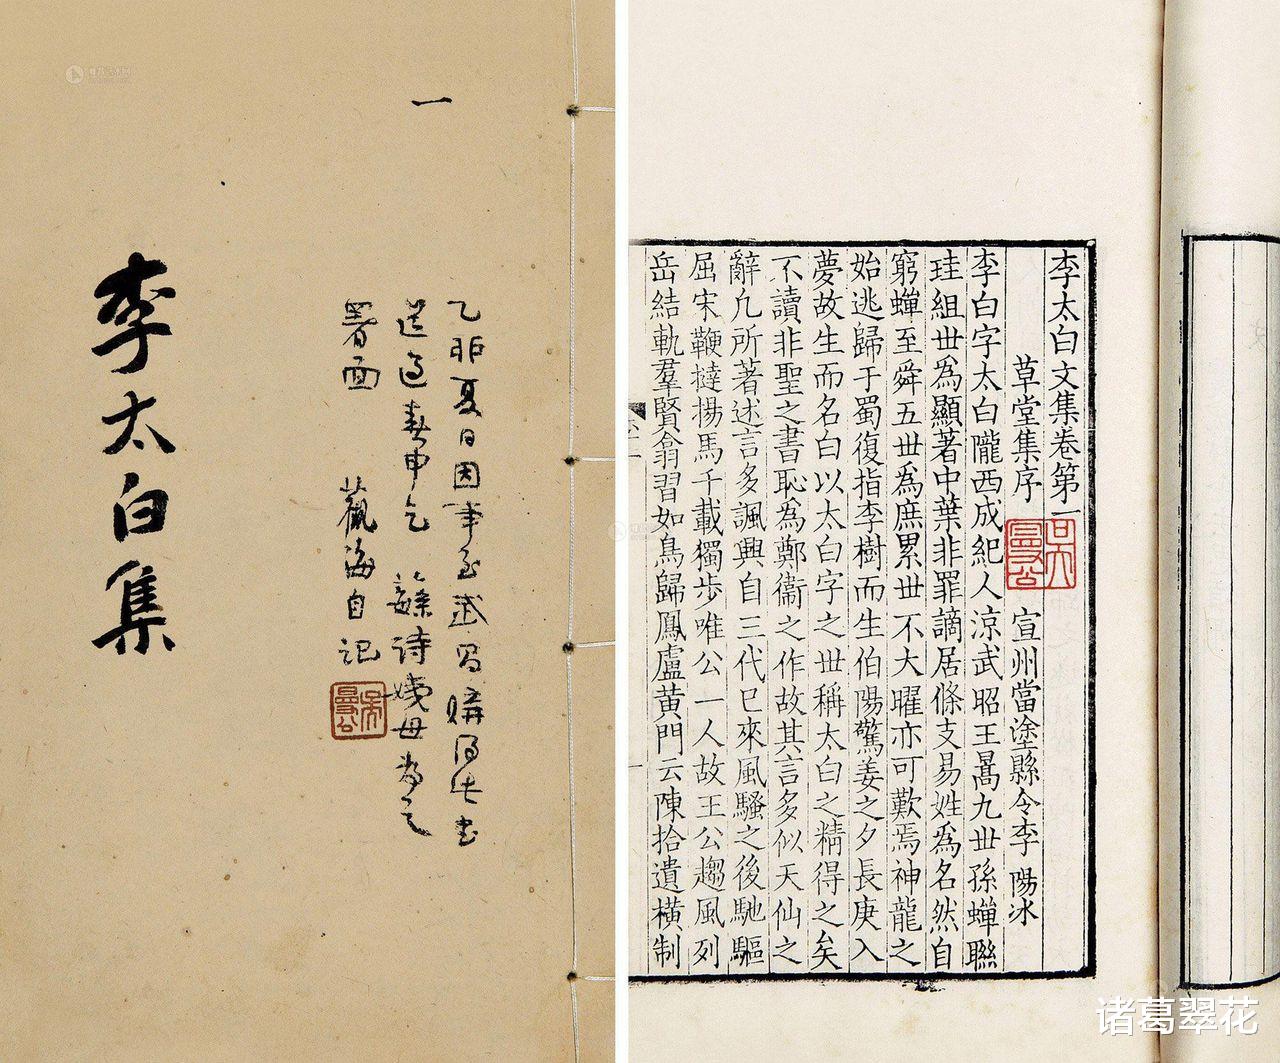 一
乙丣夏日因事至武昌購得此書
道過春申乞 蘇詩姨母為之
署面 觀海自記
吳曼公
李太白集
李太白文集卷第一
草堂集序 宣州當塗縣令李 陽冰
吳曼公
李白字太白隴西成紀人涼武昭王暠九丗孫蟬聯
珪組丗爲顯著中葉非罪謫居條支易姓爲名然自
窮蟬至舜五丗爲庶累丗不大曜亦可歎焉神龍之
始逃歸于蜀復指李樹而生伯陽驚姜之夕長庚入
夢故生而名白以太白字之丗稱太白之精得之矣
不讀非聖之書恥爲鄭衞之作故其言多似天仙之
辭凢所著述言多諷興自三代已來風騷之後馳驅
屈宋鞭撻揚馬千載獨步唯公一人故王公趨風列
岳結軌羣賢翕習如鳥歸鳳盧黃門云陳拾遺橫制
诸葛翠花